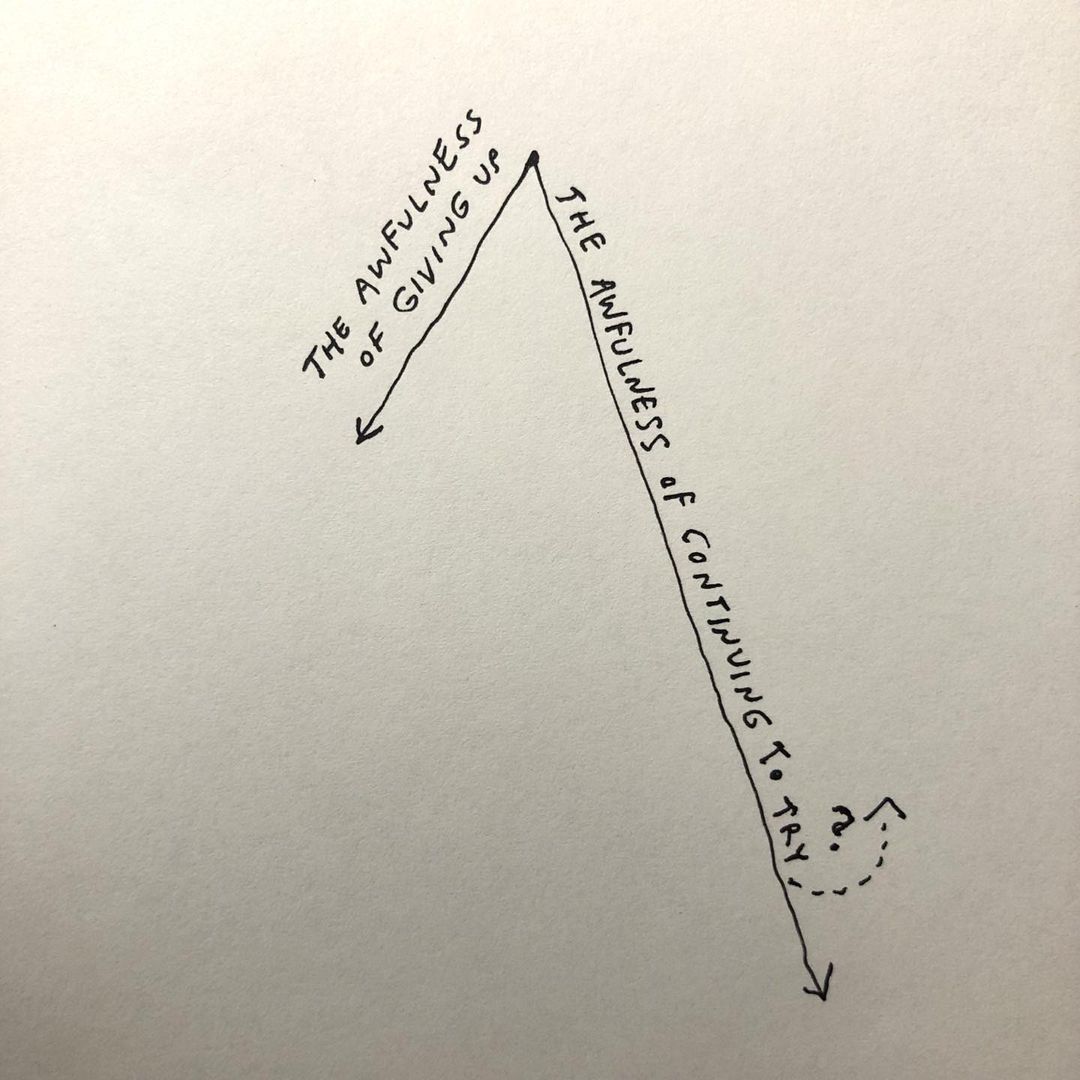 THE AWFULNESS
OF GIVING UP
THE AWFULNESS OF CONTINUING TO TRY
?